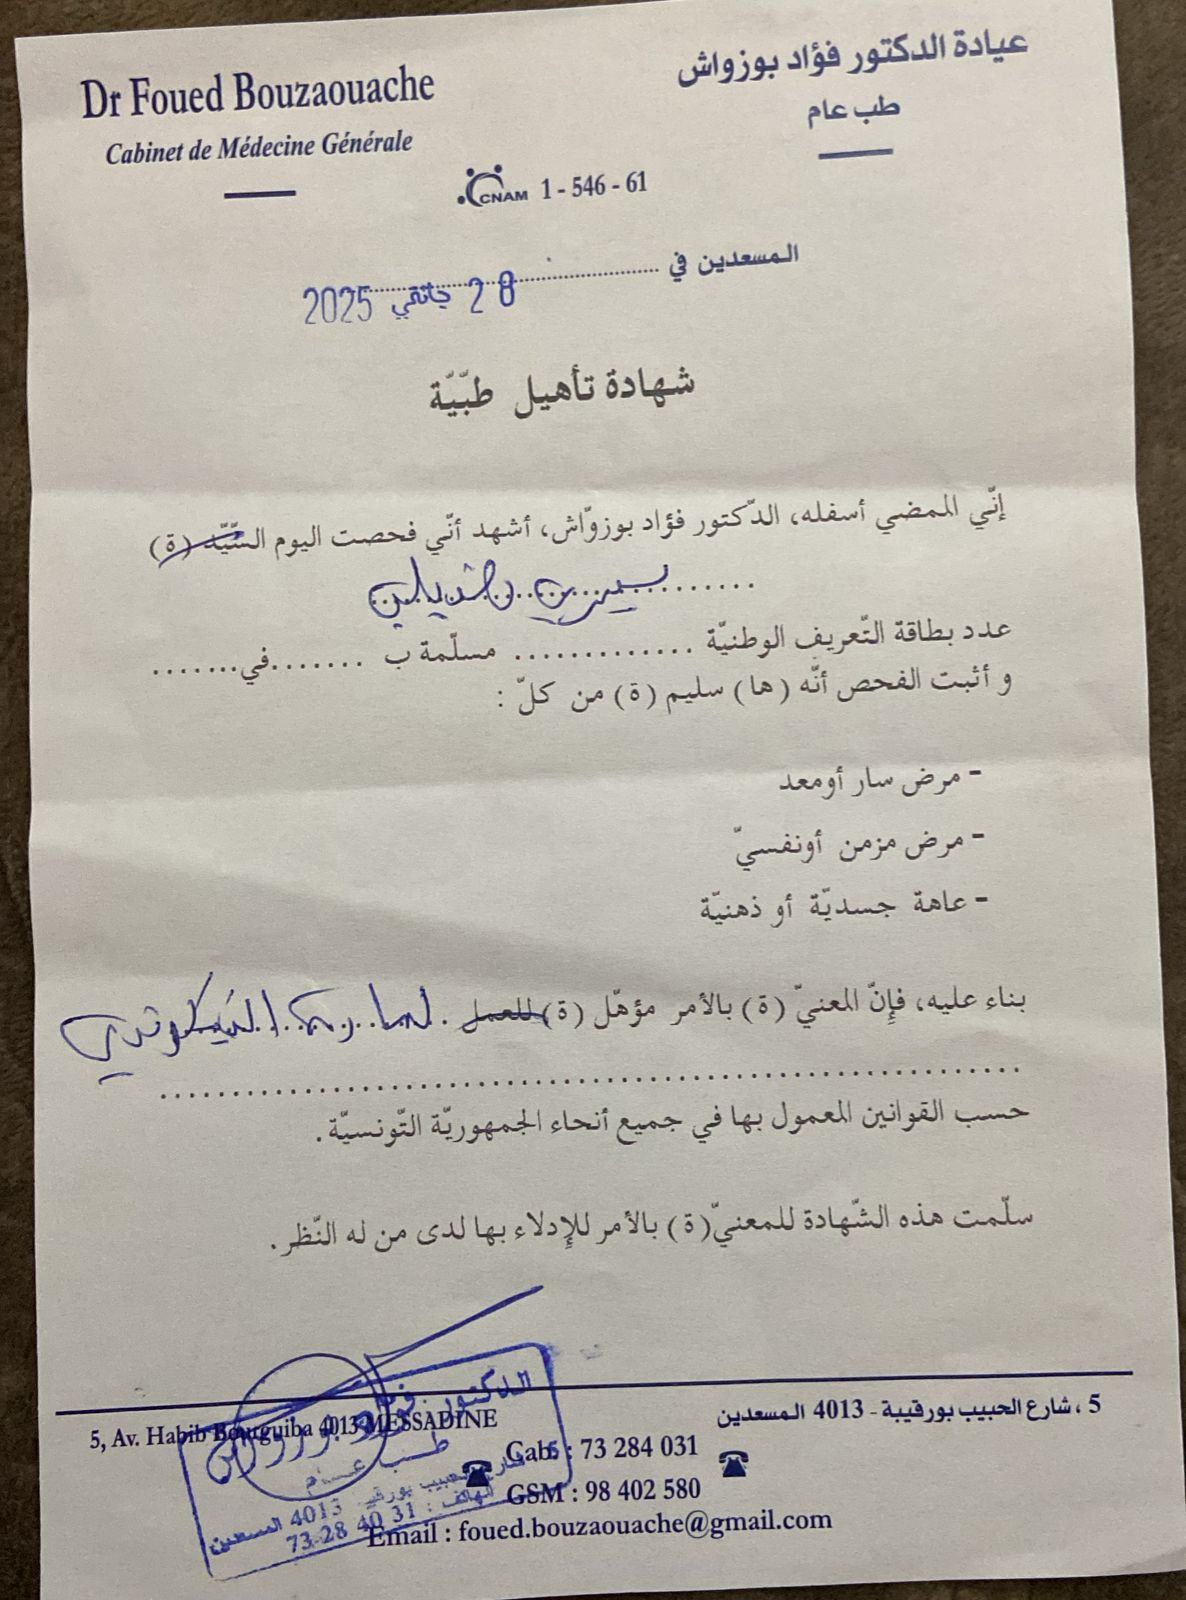 Dr Foued Bouzaouache
Cabinet de Médecine Générale
عيادة الدكتور فؤاد بوزواش
طب عام
CNAM 1 - 546 - 61
المسعدين في ........................ 28 جانفي 2025
شهادة تأهيل طبّيّة
إنّي الممضي أسفله، الدّكتور فؤاد بوزوّاش، أشهد أنّي فحصت اليوم السّيّد (ة)
سيرين
عدد بطاقة التّعريف الوطنيّة ............. مسلّمة ب .......في.......
و أثبت الفحص أنّه (ها) سليم (ة) من كلّ :
- مرض سار أومعد
- مرض مزمن أونفسيّ
- عاهة جسديّة أو ذهنيّة
بناء عليه، فإنّ المعنيّ (ة) بالأمر مؤهّل (ة) للعمل
حسب القوانين المعمول بها في جميع أنحاء الجمهوريّة التّونسيّة.
سلّمت هذه الشّهادة للمعنيّ(ة) بالأمر للإدلاء بها لدى من له النّظر.
5, Av. Habib Bourguiba 4013 MESSADINE
5 ، شارع الحبيب بورقيبة - 4013 المسعدين
Cab. : 73 284 031
GSM : 98 402 580
Email : foued.bouzaouache@gmail.com
الدكتور فؤاد بوزواش
طب عام
5 شارع الحبيب بورقيبة 4013 المسعدين
الهاتف : 73 28 40 31